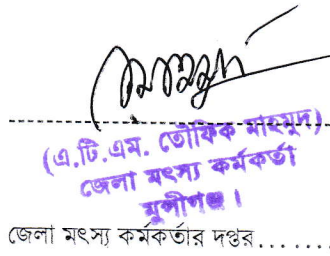 (এ.টি.এম. তৌফিক মাহমুদ)
জেলা মৎস্য কর্মকর্তা
মুন্সীগঞ্জ।
জেলা মৎস্য কর্মকর্তার দপ্তর......